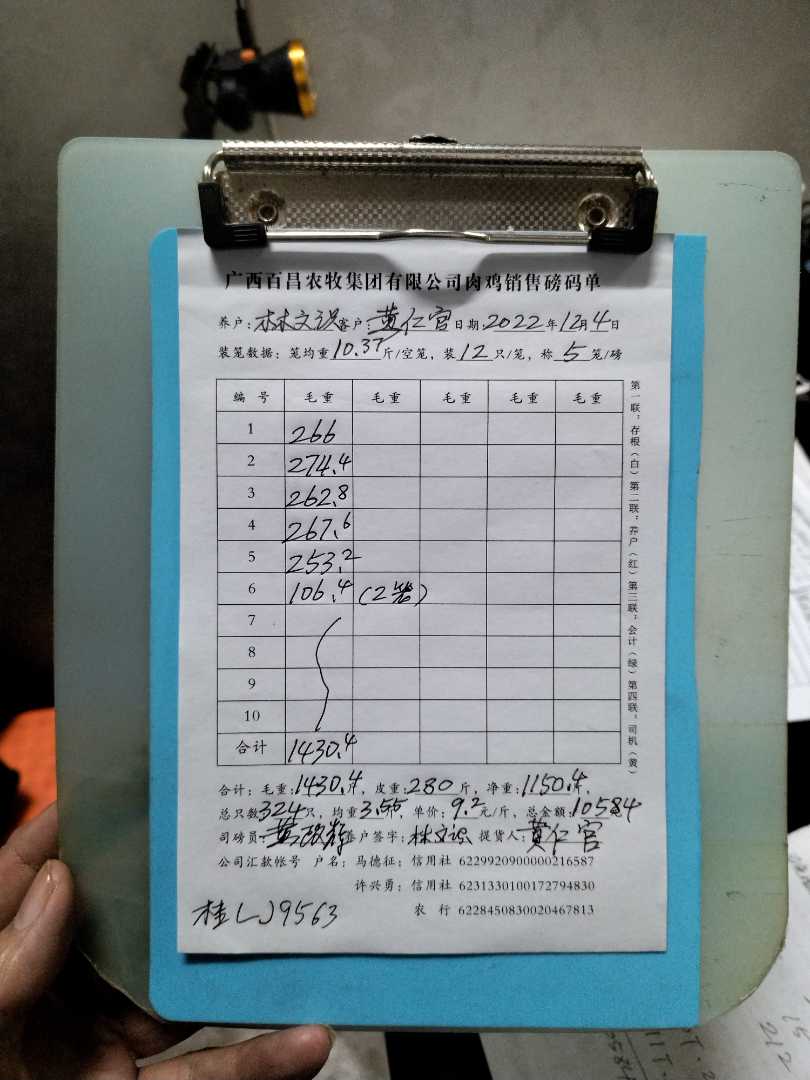 广西百昌农牧集团有限公司肉鸡销售磅码单
养户：林文识 客户：黄仁官 日期 2022 年 12 月 4 日
装笼数据：笼均重 10.37 斤/空笼，装 12 只/笼，称 5 笼/磅
编 号 毛 重 毛 重 毛 重 毛 重 毛 重
1 266
2 274.4
3 262.8
4 267.6
5 253.2
6 106.4 (2笼)
7
8
9
10
合计 1430.4
合计：毛重：1430.4斤，皮重：280斤，净重：1150.4，
总只数324只，均重3.55，单价：9.2元/斤，总金额：10584
司磅员：黄 客户签字：林文识 提货人：黄仁官
公司汇款帐号 户名：马德征：信用社 6229920900000216587
许兴勇：信用社 6231330100172794830
农 行 6228450830020467813
桂LJ9563
第一联：存根（白）第二联：养户（红）第三联：会计（绿）第四联：司机（黄）